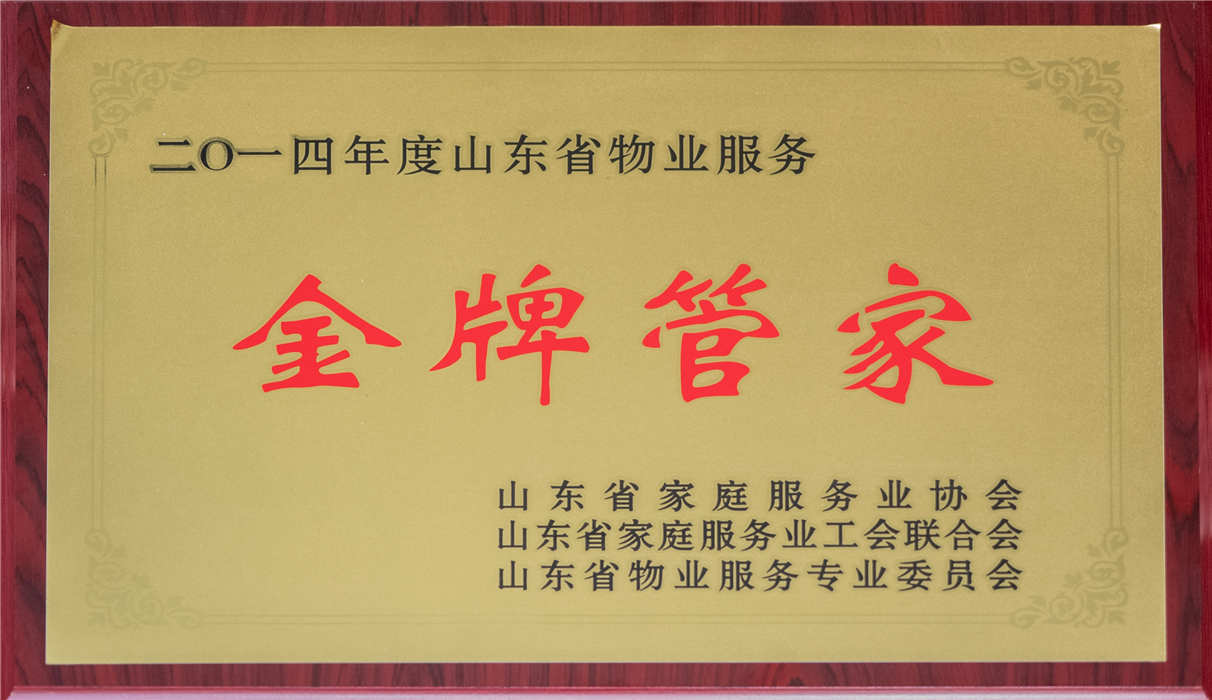 二〇一四年度山东省物业服务
金牌管家
山东省家庭服务业协会
山东省家庭服务业工会联合会
山东省物业服务专业委员会